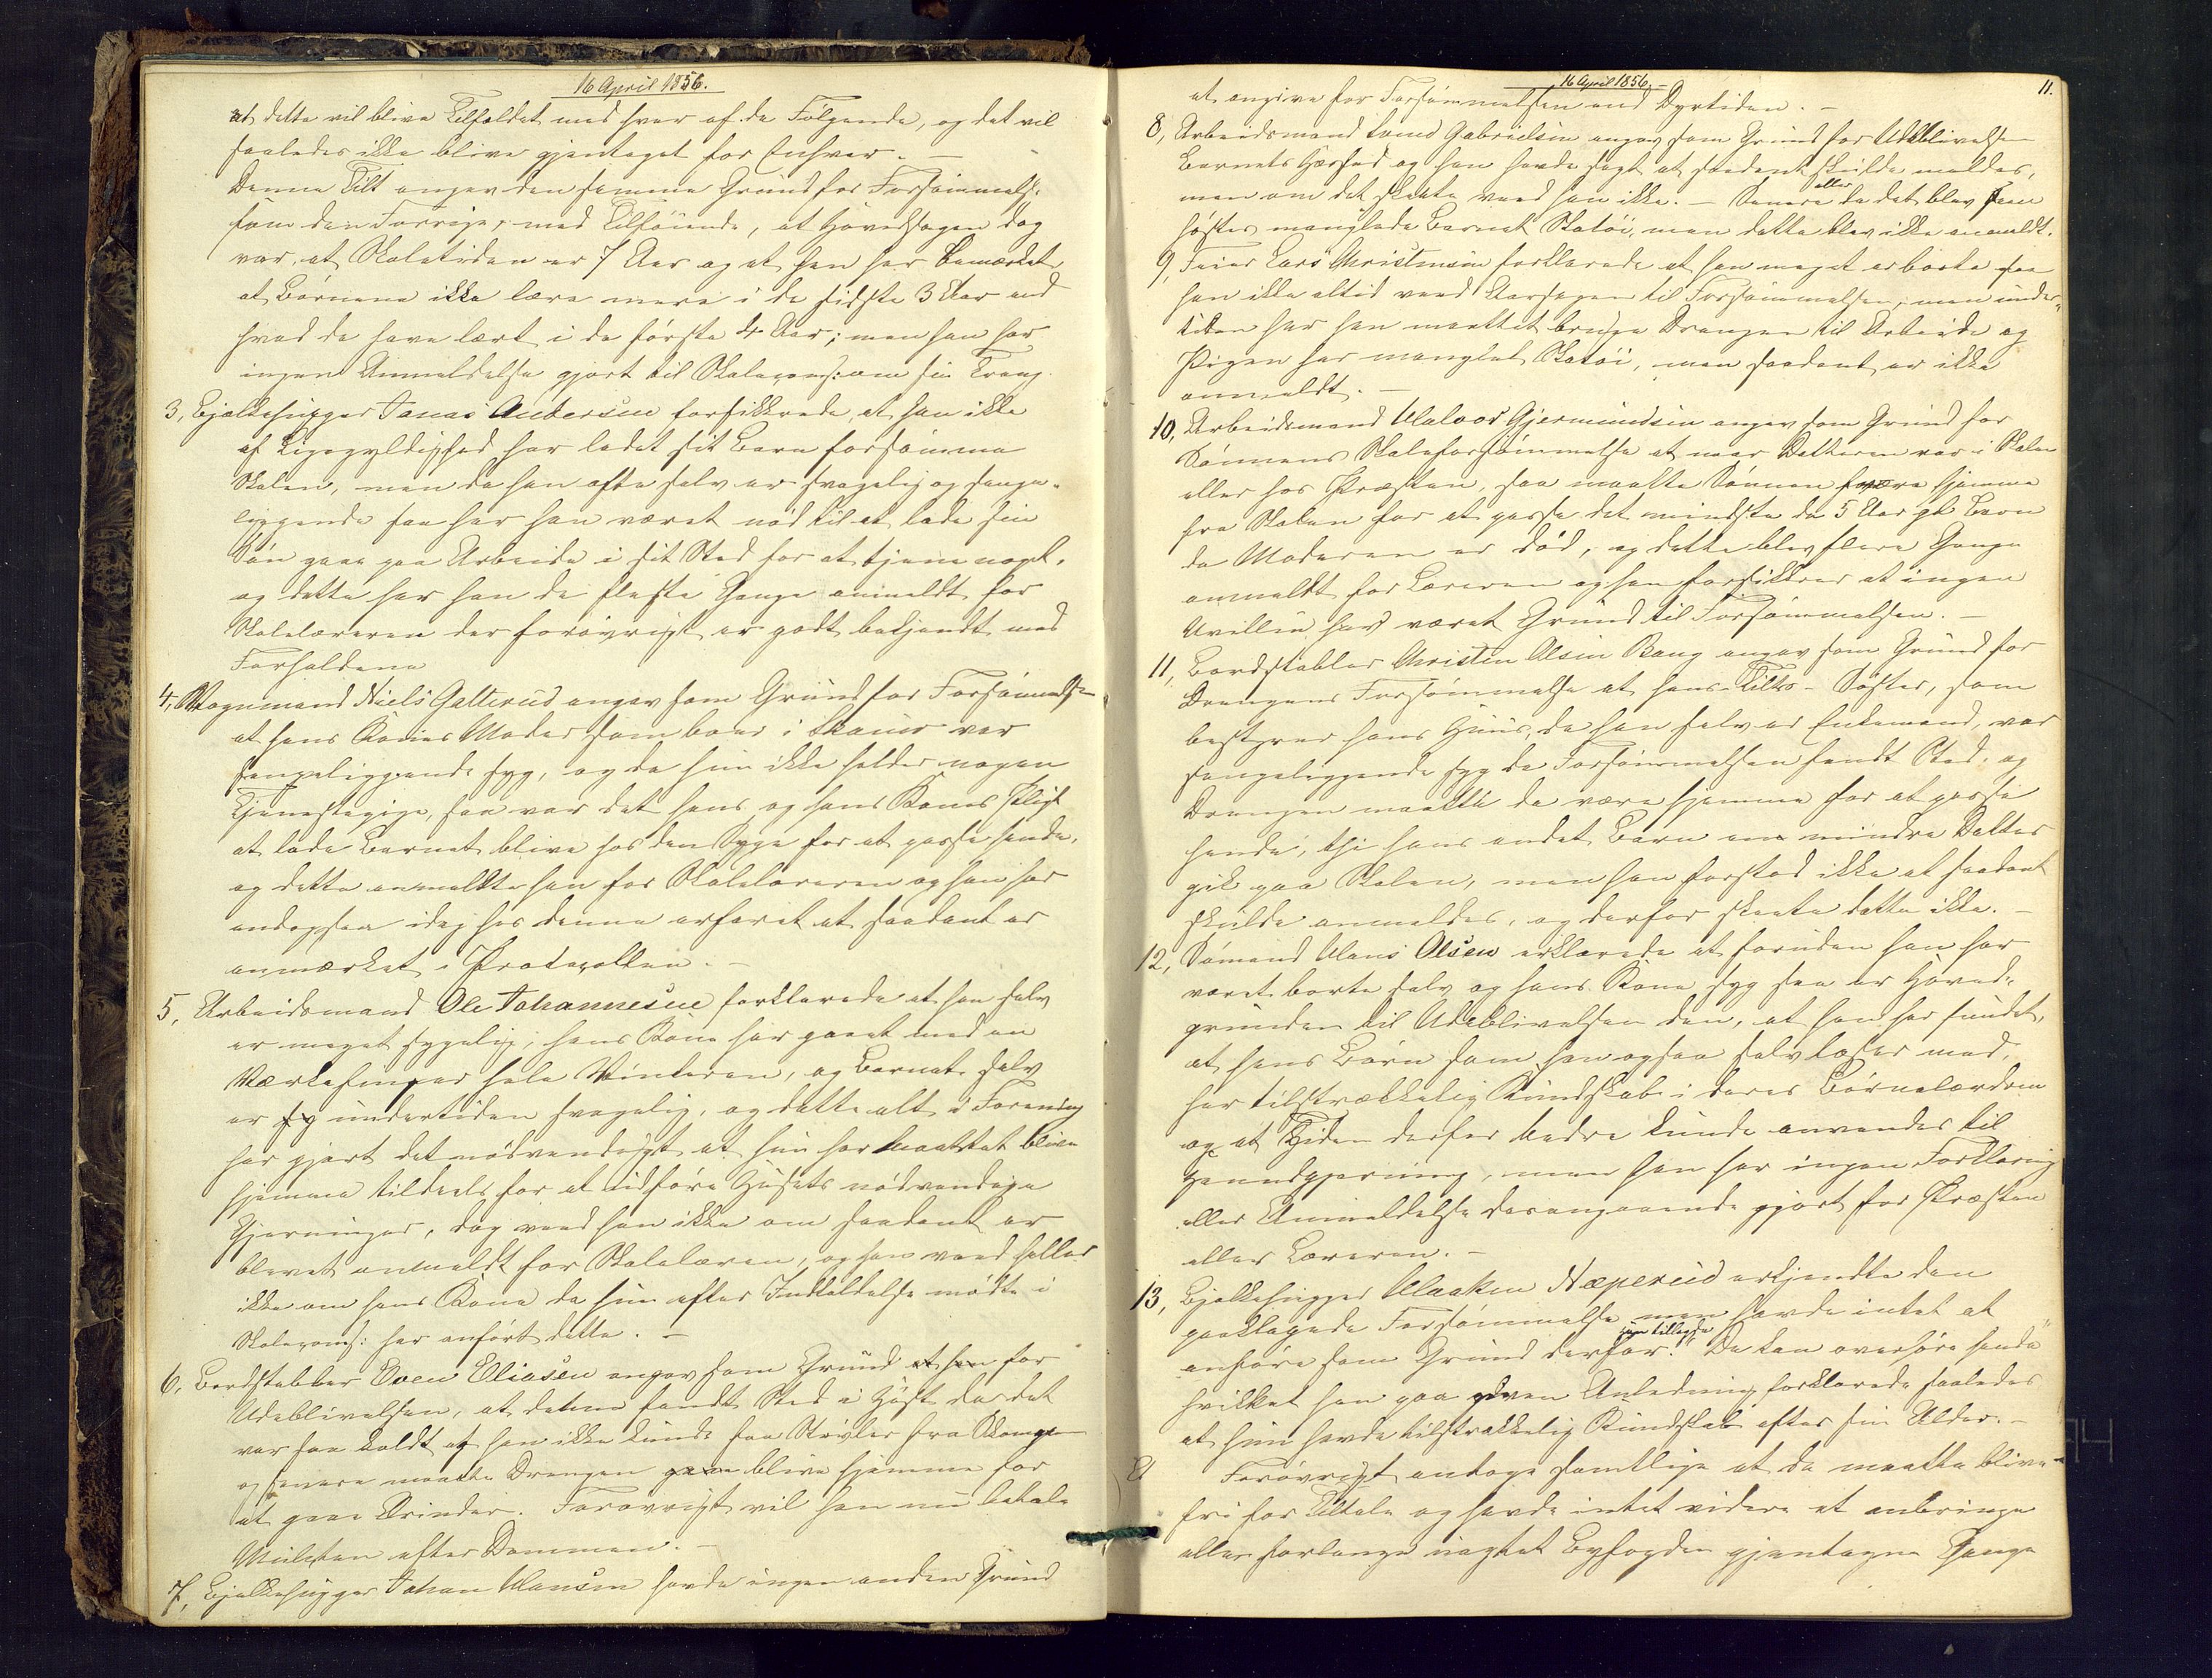 16 April 1856.
at dette vil blive Tilfældet med hver af de Følgende, og det vil
saaledes ikke blive gjentaget for Enhver. —
Denne Tilt angav den samme Grund for Forsømmels:
som den Forrige, med Tilføiende, at Hovedsagen dog
var, at Skoletiden er 7 Aar og at han har bemærket
at Børnene ikke lære mere i de sidste 3 Aar end
hvad de have lært i de første 4 Aar; men han har
ingen Anmeldelse gjort til Skolecoms: om sin Trang.
3, Bjelkehugger Jonas Andersen forsikkrede, at han ikke
af Ligegyldighed har ladet sit Barn forsømme
Skolen, men da han ofte selv er svagelig og senge-
liggende saa har han været nød til at lade sin
Søn gaae paa Arbeide i sit Sted for at tjene noget.
og dette har han de fleste Gange anmeldt for
Skolelæreren der forøvrigt er godt bekjendt med
Forholdene
4, Vognmand Niels Gallerud angav som Grund for Forsømmelsen
at hans Kones Moder som boer i Skauer var
sengeliggende syg, og da hun ikke holder nogen
Tjenestepige, saa var det hans og hans Kones Pligt
at lade Barnet blive hos den Syge for at passe hende,
og dette anmeldte han for Skolelæreren og han har
endogsaa idag hos denne erfaret at saadant er
anmærket i Protocollen. —
5, Arbeidsmand Ole Johannesen forklarede at han selv
er meget sygelig, hans Kone har gaaet med en
Værkefinger hele Vinteren, og Barnet selv
er sy undertiden svagelig, og dette alt i Forening
har gjort det nødvendigt at hun har maattet blive
hjemme tildeels for at udføre Husets nødvendige
Gjerninger, dog veed han ikke om saadant er
blevet anmeldt for Skolelæren, og han veed heller
ikke om hans Kone da hun efter Indkaldelse mødte i
Skolecoms: har anført dette. —
6, Bordstabler Even Eliasen angav som Grund at han for
Udeblivelsen, at denne fandt Sted i Høst da det
var saa koldt at han ikke kunde faa Støvler fra Skomager
og senere maatte Drengen gaae blive hjemme for
at gaae Ærinder. Forøvrigt vil han nu betale
Mulcten efter Dommen. —
7, Bjelkehugger Johan Hansen havde ingen anden Grund
16 April 1856. —
11.
at angive for Forsømmelsen end Dyrtiden. —
8, Arbeidsmand Gabrielsen angav som Grund for Udeblivelsen
Barnets Hæshed og han havde sagt at saadant skulde meldes,
men om det skeete veed han ikke. — Senere da det blev
eller
høster manglede Barnet Skotøi, men dette blev ikke anmeldt.
9, Feier Lars Christensen forklarede at han meget er borte saa
han ikke altid veed Aarsagen til Forsømmelsen, men under-
tiden har han maattet bruge Drengen til Arbeide og
Pigen har manglet Skotøi, men saadant er ikke
anmeldt. —
10, Arbeidsmand Halvor Gjermundsen angav som Grund for
Sønnens Skoleforsømmelse at naar Datteren var i Skolen
eller hos Præsten, saa maatte Sønnen være hjemme
fra Skolen for at passe det mindste da 5 Aar gl Barn
da Moderen er død, og dette blev flere Gange
anmeldt for Læreren og han forsikkrer at ingen
Uvillie har været Grund til Forsømmelsen. —
11, Bordstabler Christen Olsen Bang angav som Grund for
Drengens Forsømmelse at hans — Tilts — Søster, som
bestyrer hans Huus, da han selv er Enkemand, var
sengeliggende syg da Forsømmelsen fandt Sted, og
Drengen maatte da være hjemme for at passe
hende, thi hans andet Barn en mindre Datter
gik paa Skolen, men han forstod ikke at saadant
skulde anmeldes, og derfor skeete dette ikke. —
12, Sømand Hans Olsen erklærede at foruden han har
været borte selv og hans Kone syg saa er Hoved-
grunden til Udeblivelsen den, at han har fundet,
at hans Børn som han ogsaa selv læser med,
har tilstrækkelig Kundskab i deres Børnelærdom
og at Tiden derfor bedre kunde anvendes til
Haandgjerning, men han har ingen Forklaring
eller Anmeldelse desangaaende gjort for Præsten
eller Læreren. —
13, Bjelkehugger Haaken Næperud erkjendte den
paaklagede Forsømmelse men havde intet at
anføre som Grund derfor. "De kan overhøre hende"
han tillagde
hvilket han paa given Anledning forklarede saaledes
at hun havde tilstrækkelig Kundskab efter sin Alder. —
Forøvrigt androge samtlige at de maatte blive
fri for Tiltale og havde intet videre at anbringe
eller forlange uagtet Byfogden gjentagne Gange